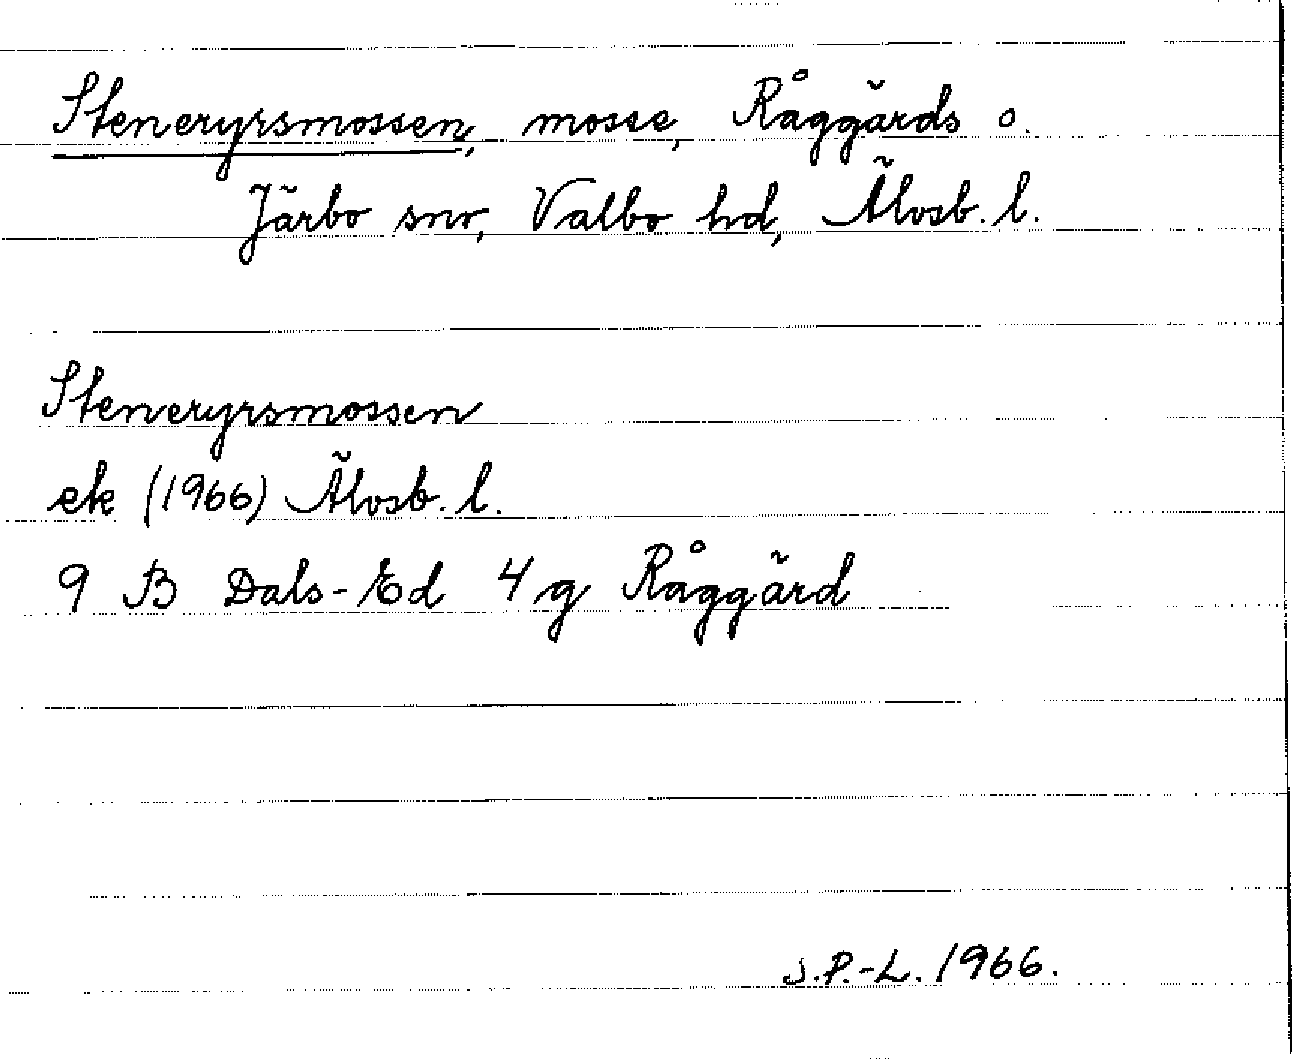 Steneryrsmossen, mosse, Råggärds o.
Järbo snr, Valbo hd, Älvsb. l.
Steneryrsmossen
ek (1966) Älvsb. l.
9 B Dals-Ed 4 g Råggärd
S.P.-L. 1966.